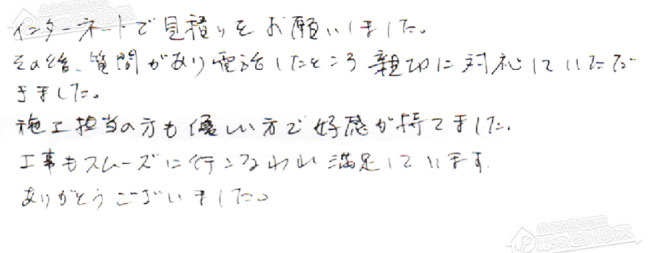 インターネートで見積りをお願いしました。
その後、質問があり電話したところ親切に対応していただ
きました。
施工担当の方も優しい方で好感が持てました。
工事もスムーズに行なわれ満足しています。
ありがとうございました。